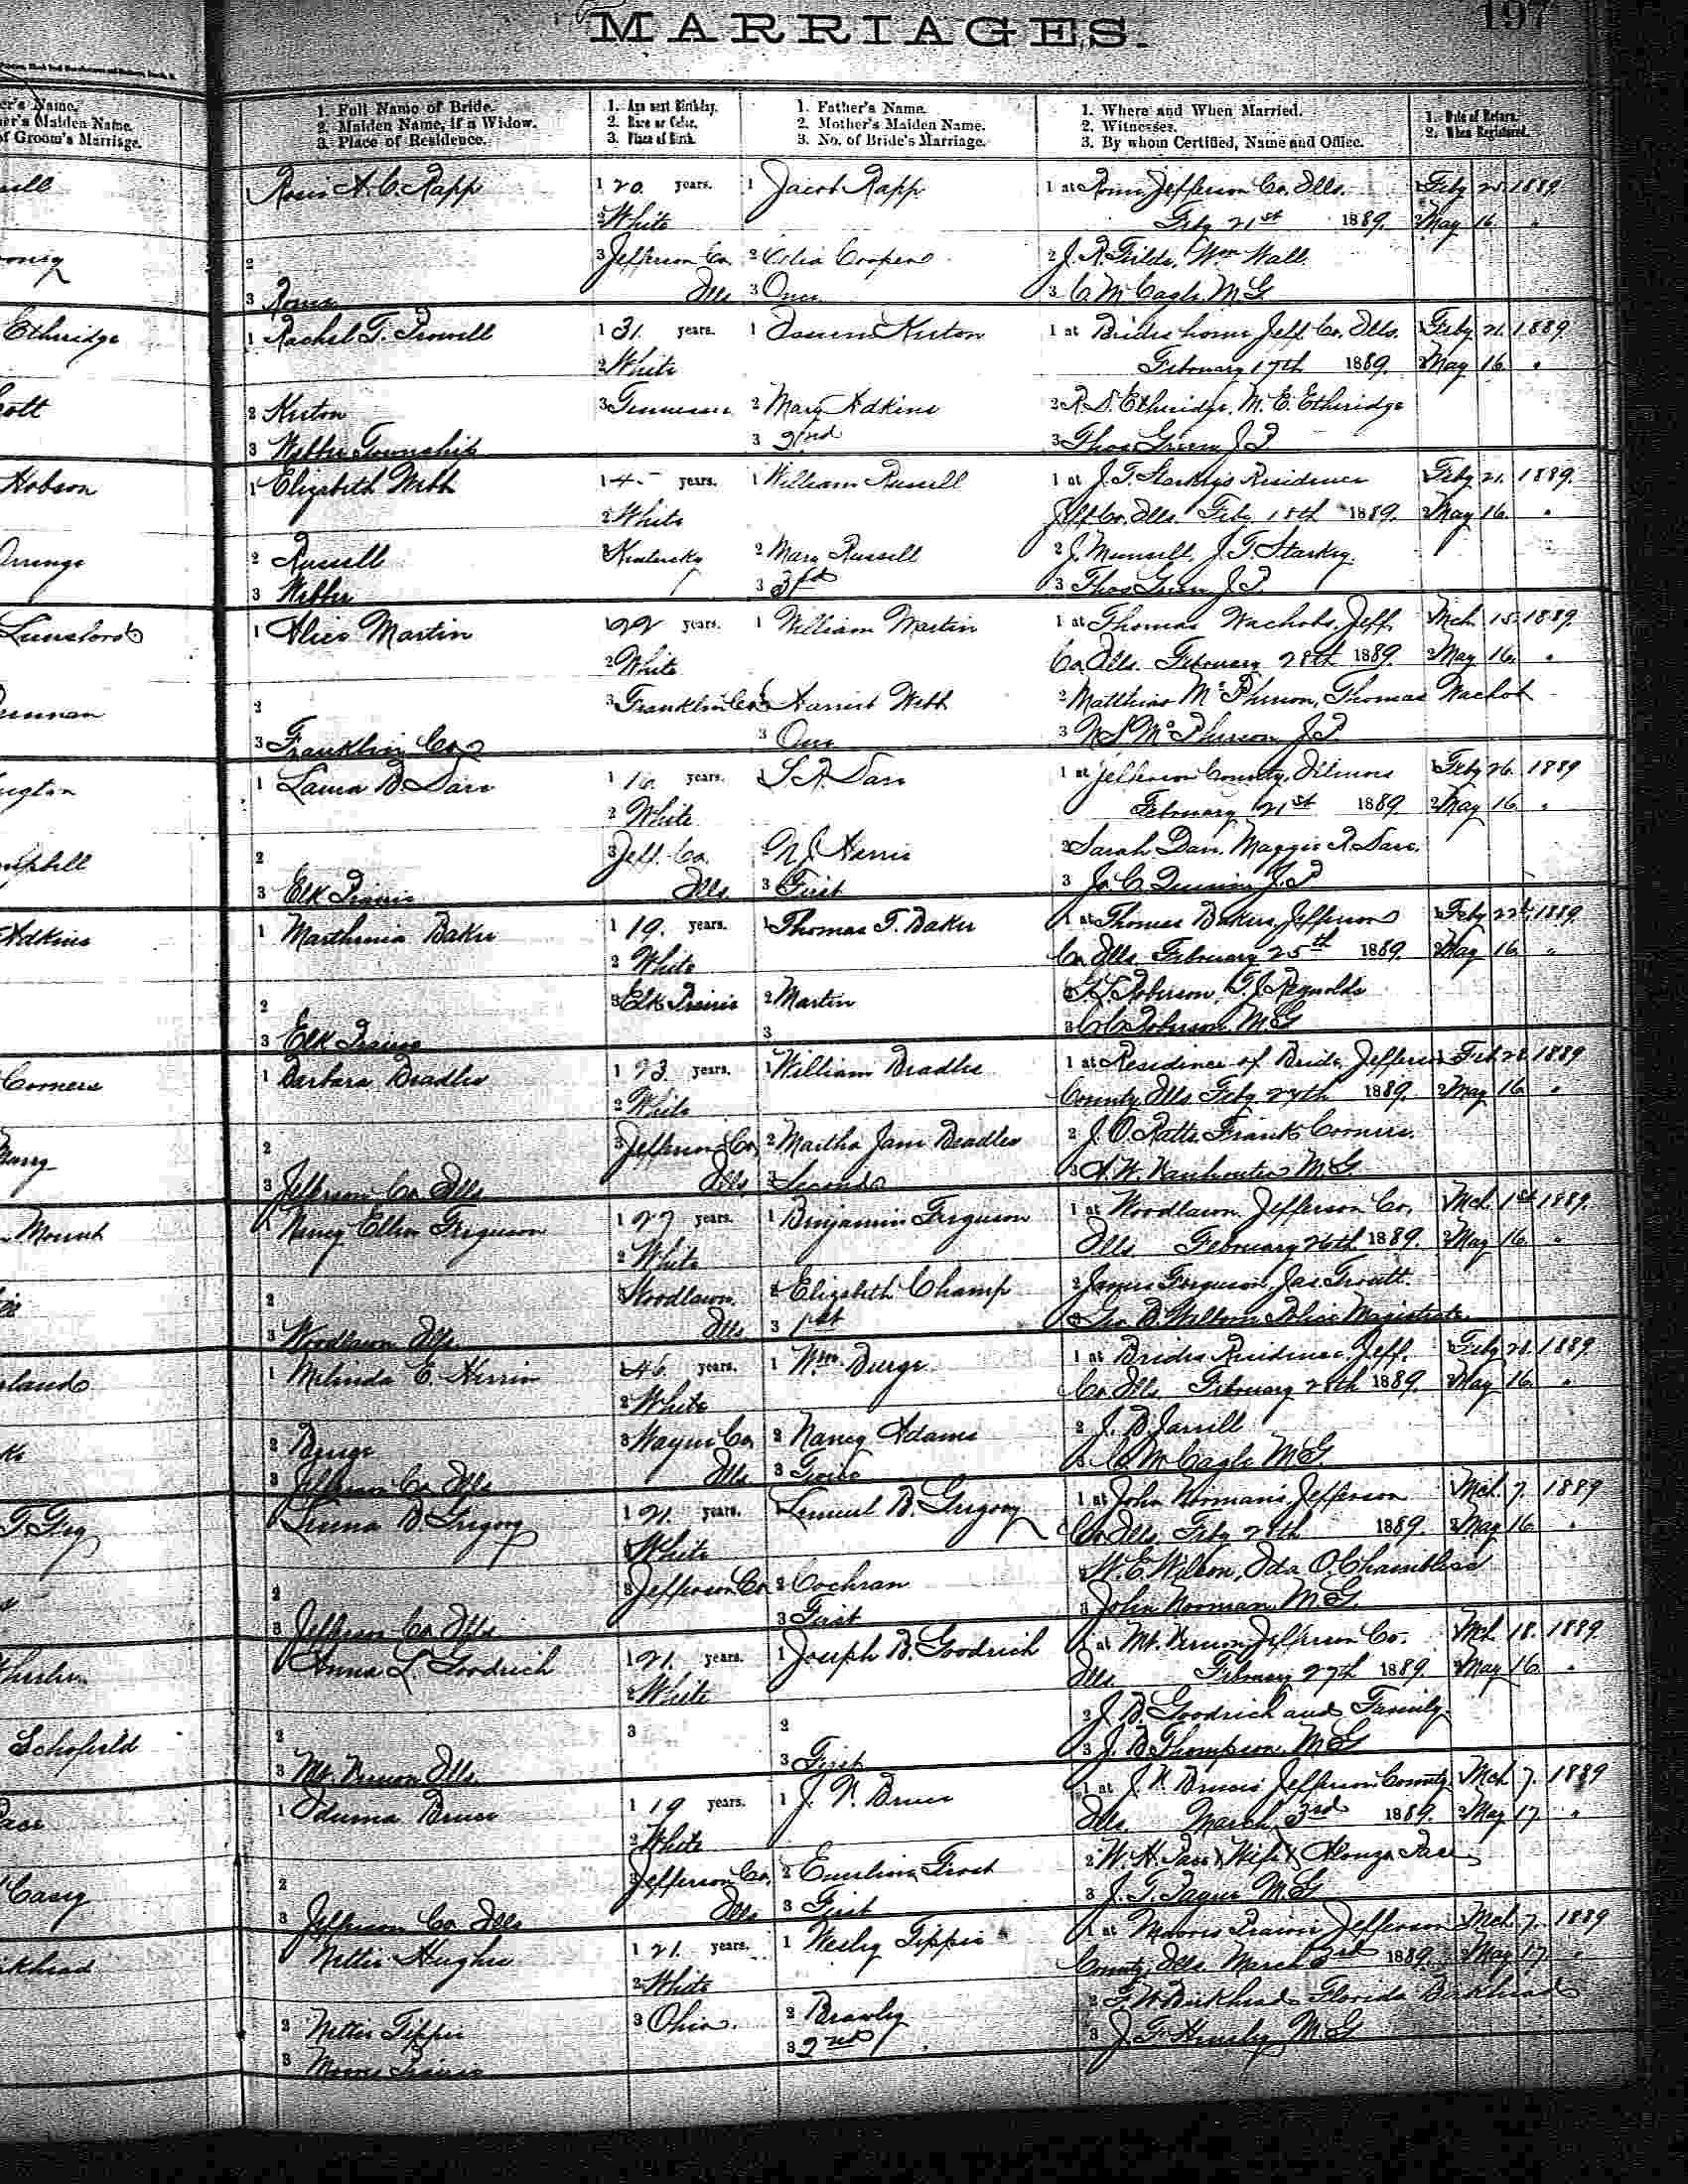 MARRIAGES.
197
1. Full Name of Bride.
2. Maiden Name, if a Widow.
3. Place of Residence.
1. Age next Birthday.
2. Race or Color.
3. Place of Birth.
1. Father's Name.
2. Mother's Maiden Name.
3. No. of Bride's Marriage.
1. Where and When Married.
2. Witnesses.
3. By whom Certified, Name and Office.
1. Date of Return.
2. When Registered.
er's Name.
er's Maiden Name.
of Groom's Marriage.
1 Rosie A. C. Rapp 1 20 years. 1 Jacob Rapp 1 at Rome Jefferson Co. Ills. 1 Feby 25. 1889.
2 White Feby 21st 1889. 2 May 16. "
2 3 Jefferson Co. 2 Celia Cooper 2 J. R. Filds, Wm Wall.
3 Rome Ills 3 One 3 C. M. Cagle M G
Etheridge
1 Rachel T. Prowell 1 31. years. 1 Kirton 1 at Brides home Jeff. Co. Ills. Feby 21. 1889.
2 White February 17th 1889. 2 May 16. "
2 Kirton 3 Tennessee 2 Mary Adkins 2 R. S. Etheridge, M. E. Etheridge
3 Webber Township 3 2nd 3 Thos Green J. P.
Hobson
1 Elizabeth Webb 1 4 - years. 1 William Russell 1 at J. T. Starkey's Residence Feby 21. 1889.
2 White Jeff Co. Ills. Feb. 18th 1889. 2 May 16. "
2 Russell 3 Kentucky 2 Mary Russell 2 J. Munsell, J. T. Starkey.
3 Webber 3 3rd 3 Thos Green J. P.
Lunsford
1 Alice Martin 1 22 years. 1 William Martin 1 at Thomas Wachobs, Jeff. Mch 15. 1889.
2 White Co. Ills. February 28th 1889. 2 May 16. "
2 3 Franklin Co. 2 Harriet Webb 2 Matthias McPherson, Thomas Wachob
3 Franklin Co. 3 One 3 N S McPherson J. P.
1 Laura B. Darr 1 16. years. 1 S. A. Darr 1 at Jefferson County, Illinois Feby 26. 1889
2 White February 21st 1889 2 May 16. "
2 3 Jeff. Co. 2 N. J. Harris 2 Sarah Darr, Maggie A. Darr.
3 Elk Prairie Ills. 3 First 3 J. P.
Adkins
1 Marthenia Baker 1 19. years. 1 Thomas T. Baker 1 at Thomas Bakers, Jefferson 1 Feby 1889.
2 White Co. Ills. February 25th 1889. 2 May 16. "
2 3 Elk Prairie 2 Martin Roberson, T. J. Reynolds
3 Elk Prairie 3 3 Roberson M G
Corners
1 Barbara Beadles 1 23. years. 1 William Beadles 1 at Residence of Bride, Jefferson Feb 28. 1889
2 White County Ills Feby 27th 1889. 2 May 16. "
2 3 Jefferson Co. 2 Martha Jane Beadles 2 J. O. Ratts, Frank Corners.
3 Jefferson Co. Ills Ills. 3 Second 3 A. W. Vanhouten M. G.
Mount
1 Nancy Ellen Ferguson 1 27 years. 1 Benjamin Ferguson 1 at Woodlawn Jefferson Co. Mch 1st 1889.
2 White Ills. February 26th 1889. 2 May 16. "
2 3 Woodlawn. 2 Elizabeth Champ 2 James Ferguson, Jas Troutt.
3 Woodlawn Ills. Ills 3 1st 3 Geo. B. Welborn Police Magistrate.
1 Melinda E. Herrin 1 46. years. 1 Wm. Burge 1 at Brides Residence Jeff. Feby 28. 1889
2 White Co. Ills February 28th 1889. 2 May 16. "
2 Burge 3 Wayne Co. 2 Nancy Adams 2 J. B. Jarrell
3 Jefferson Co Ills Ills 3 Twice 3 C. M. Cagle M G
1 B. Gregory 1 21. years. 1 Lemuel B. Gregory 1 at John Normans, Jefferson Mch. 7. 1889
2 White Co. Ills. Feby 28th 1889. 2 May 16. "
2 3 Jefferson Co 2 Cochran 2 W. E. Wilson, Ida O. Chambliss
3 Jefferson Co Ills 3 First 3 John Norman M. G.
1 Anna L. Goodrich 1 21. years. 1 Joseph B. Goodrich 1 at Mt. Vernon Jefferson Co. Mch 18. 1889.
2 White Ills. February 27th 1889 2 May 16. "
Schofield 2 3 2 2 J. B. Goodrich and Family.
3 Mt. Vernon Ills. 3 First 3 J. B. Thompson. M G
1 Iduma Bruce 1 19 years. 1 J. V. Bruce 1 at J. V. Bruces Jefferson County Mch 7. 1889
2 White Ills. March 3rd 1889. 2 May 17. "
Casey 2 3 Jefferson Co. 2 Emeline Frost 2 W. H. Pace & Wife & Alonzo Pace
3 Jefferson Co Ills Ills 3 First 3 J. T. M. G
1 Nettie Hughes 1 21. years. 1 Wesley Tippie 1 at Moores Prairie Jefferson Mch 7. 1889
2 White County, Ills. March 3rd 1889. 2 May 17 "
2 Nettie Tippie 3 Ohio. 2 Brawley 2 F. W. Birkhead Florida Birkhead
3 Moores Prairie 3 2nd 3 J. F. Hensley M G